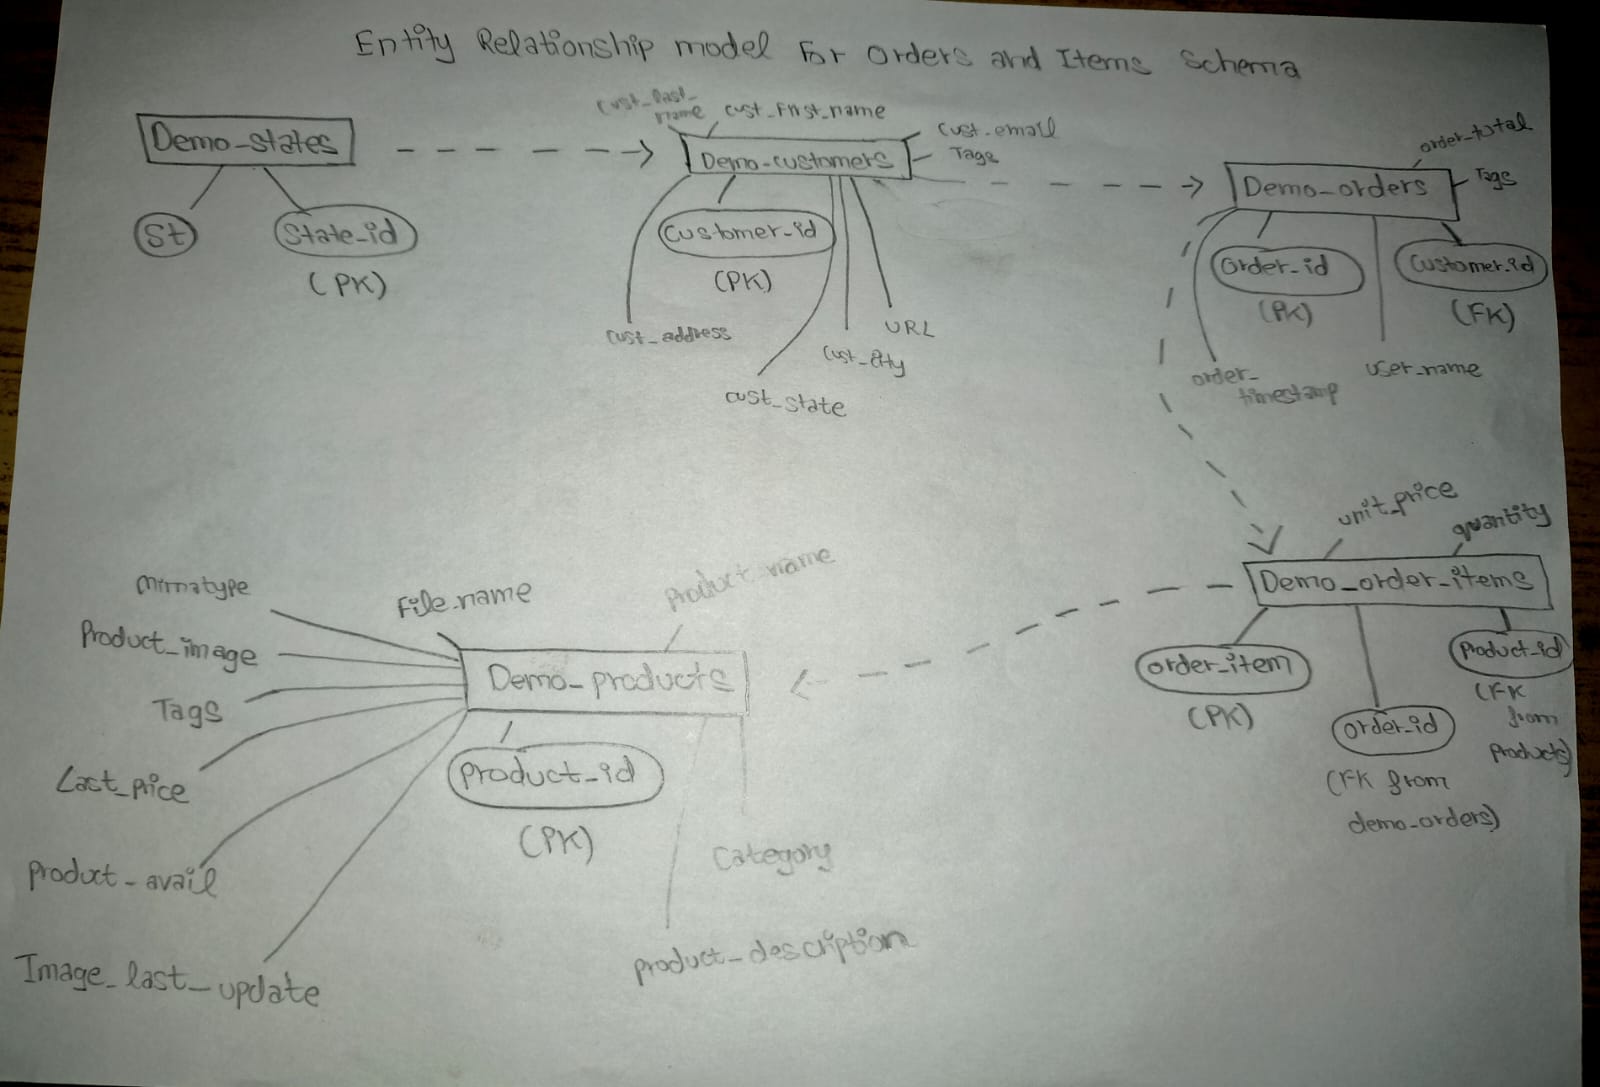 Entity Relationship model For Orders and Items Schema
Demo_states
St
State_id
(PK)
Cust_last_
name
Cust_First_name
Cust_email
Tags
Demo_customers
Customer_id
(PK)
Cust_address
cust_state
Cust_City
URL
order_total
Tags
Demo_orders
Order_id
(PK)
Customer_id
(FK)
order_
timestamp
user_name
unit_price
quantity
Demo_order_items
order_item
(PK)
order_id
(FK from
demo_orders)
Product_id
(FK
from
products)
Mimatype
File_name
Product_name
Product_image
Tags
Last_price
Product_avail
Image_last_update
Demo_products
Product_id
(PK)
Category
product_description